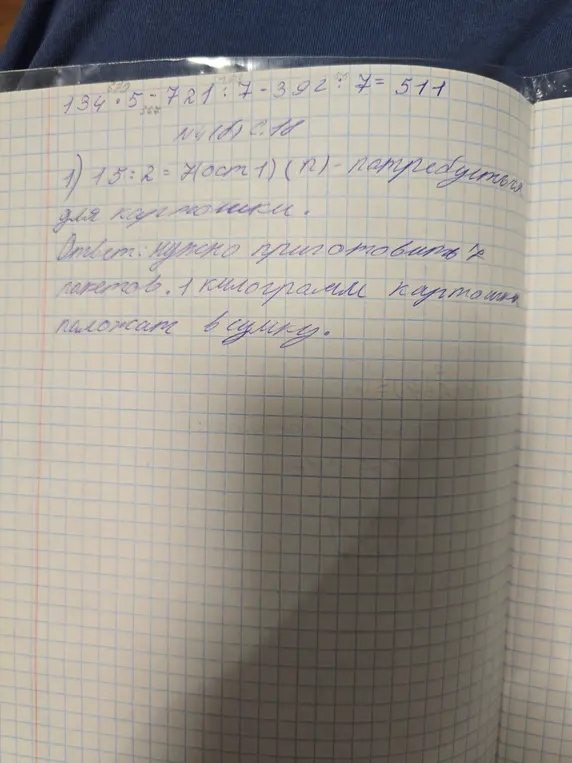 134 · 5 - 721 : 7 - 392 : 7 = 511
№4(б) С.18
1) 15 : 2 = 7(ост 1) (п) - патребуеться
для картошки.
Ответ: нужно приготовить 7
пакетов. 1 килограмм картошки
положат в сумку.